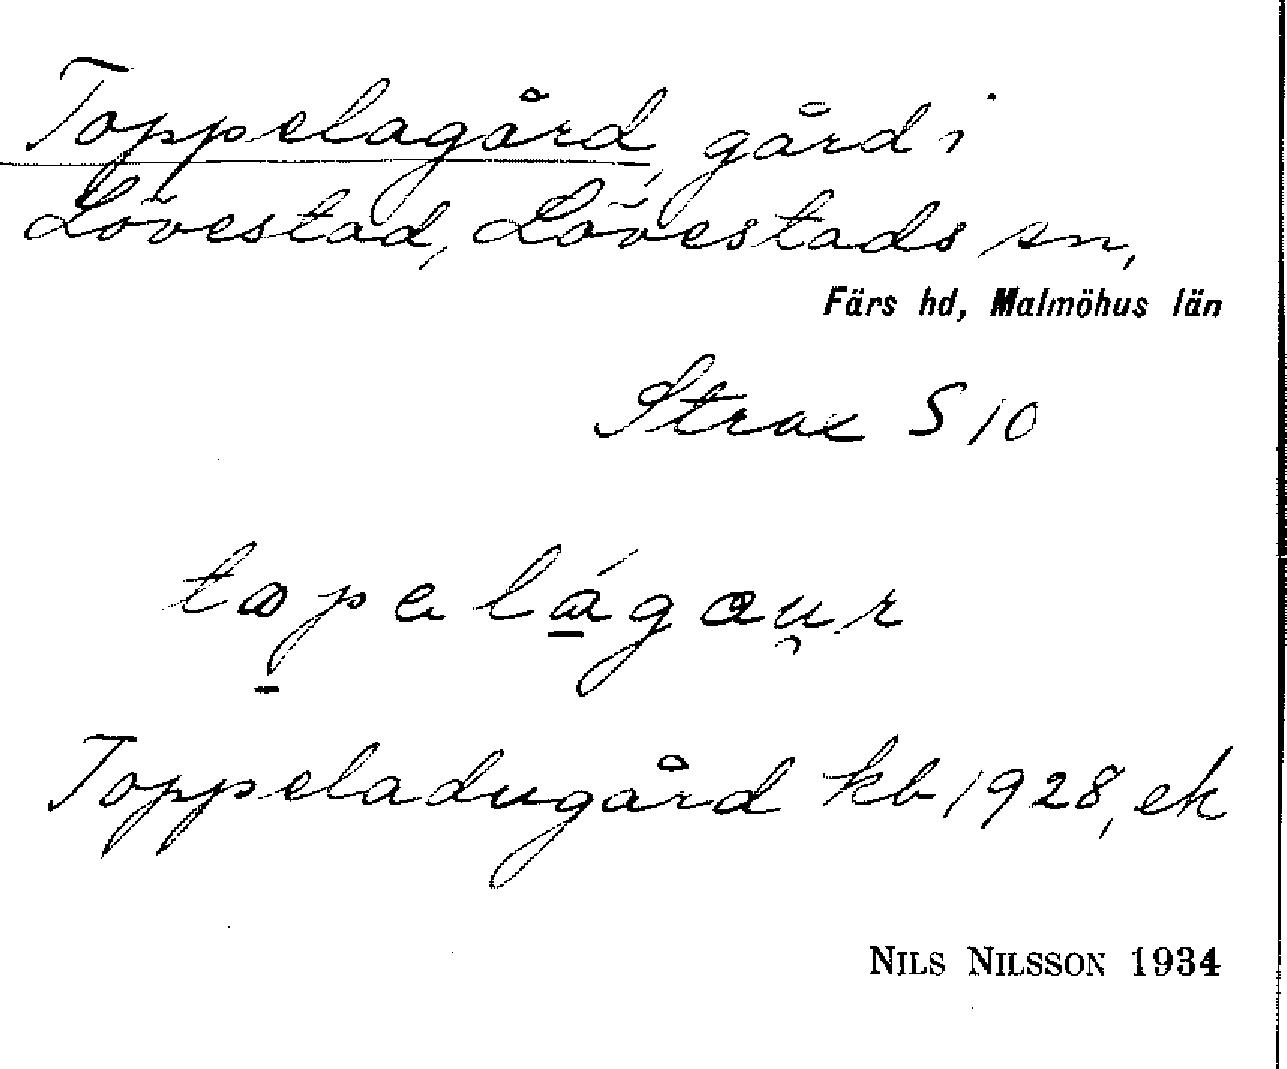 Toppelagård, gård i
Lövestad, Lövestads sn,
Färs hd, Malmöhus län
Strax S 10
Toppeladugård kb 1928, ek
NILS NILSSON 1934